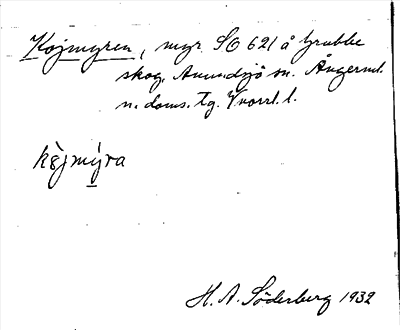 Kojmyren, myr SO 621 å Grubbe
skog, Anundsjö sn. Ångerml.
n. doms. tg. Vnorrl. l.
kòjmýra
H. A. Söderberg 1932